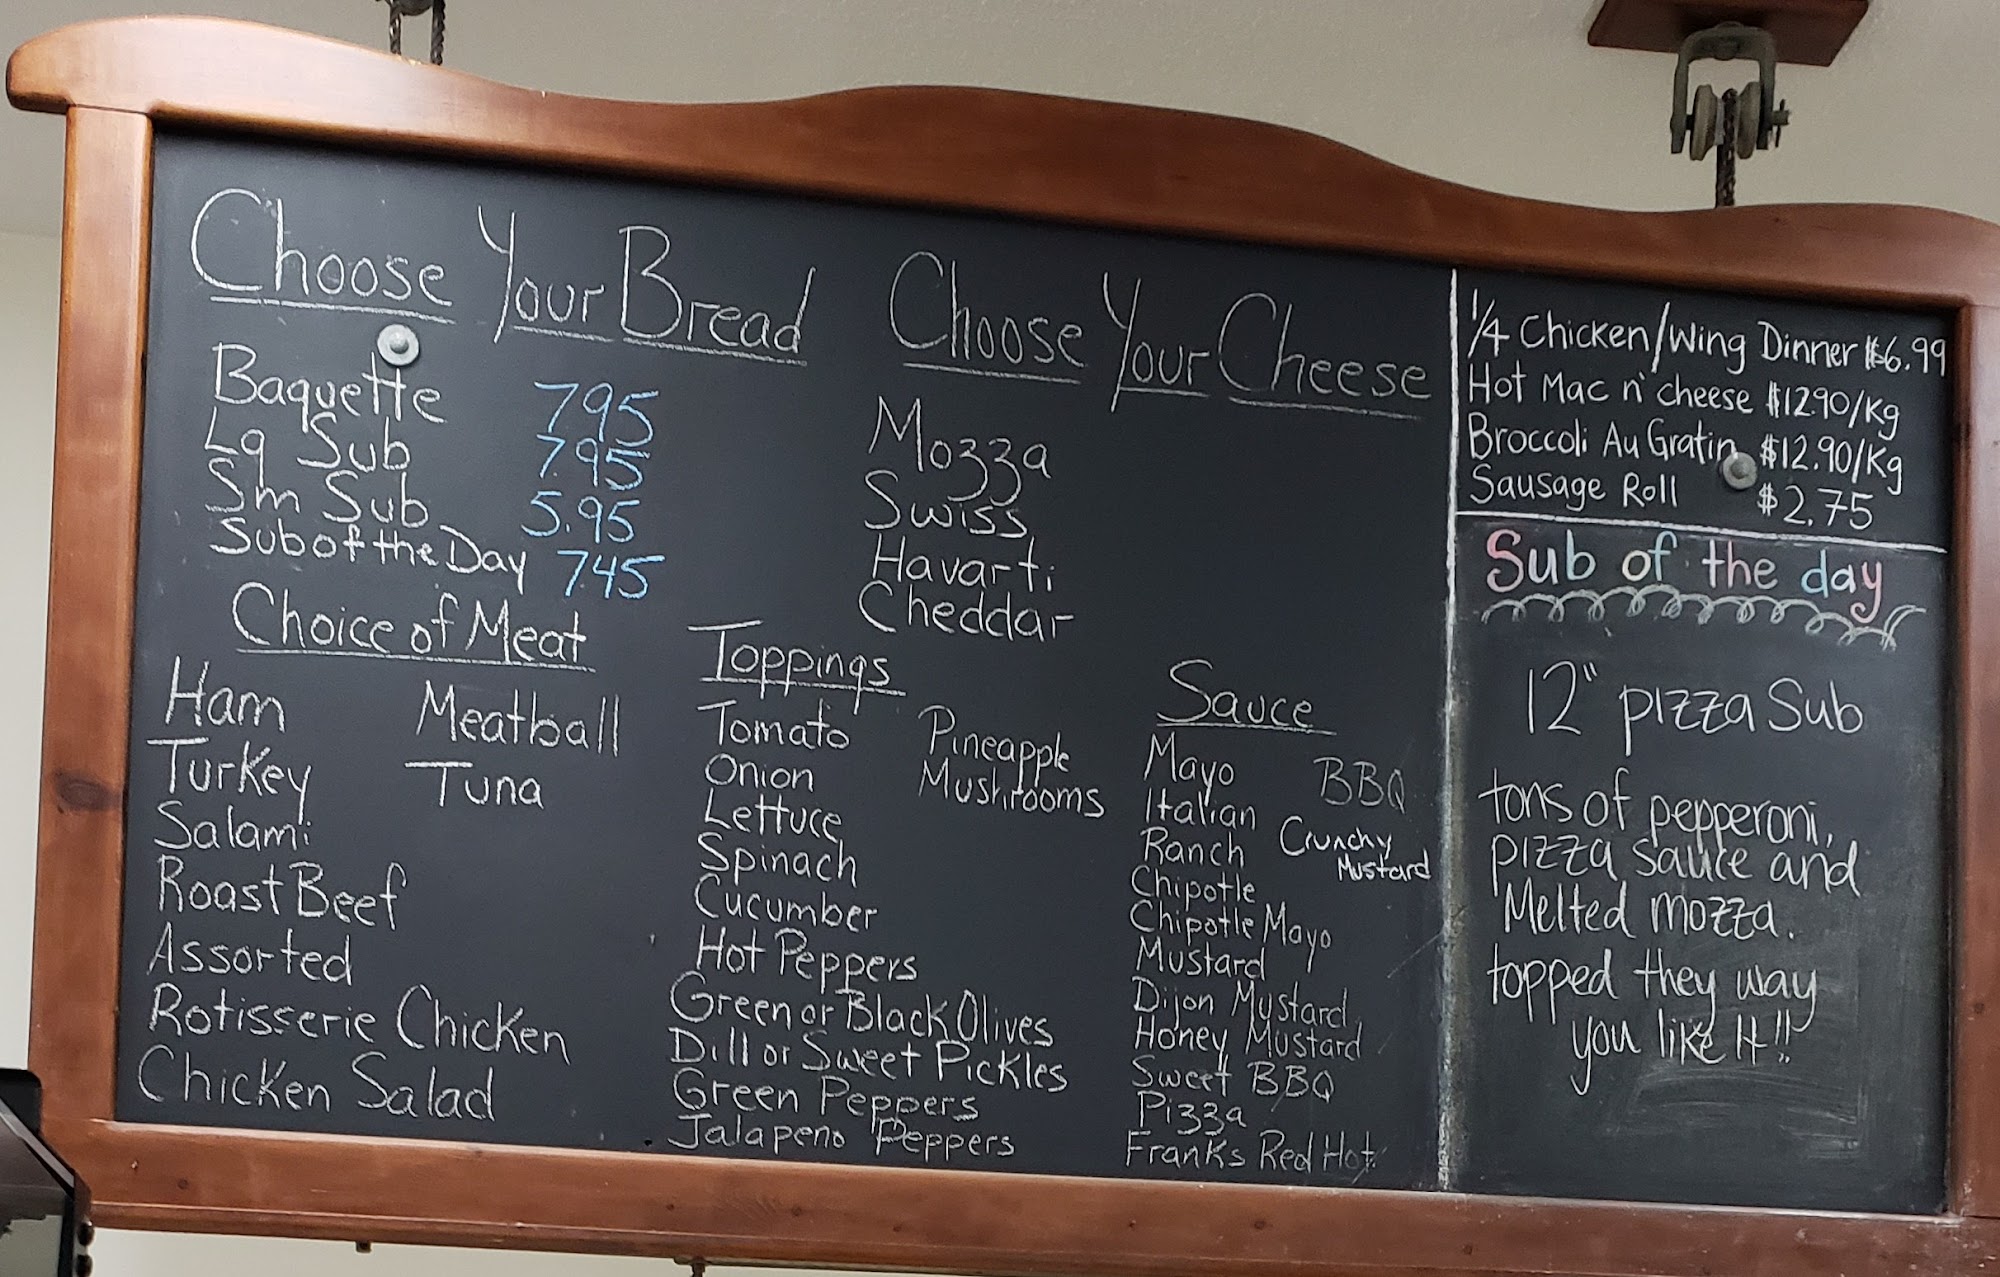 Choose Your Bread
Baquette 7.95
Lg Sub 7.95
Sm Sub 5.95
Sub of the Day 7.45
Choice of Meat
Ham
Turkey
Salami
Roast Beef
Assorted
Rotisserie Chicken
Chicken Salad
Meatball
Tuna
Choose Your Cheese
Mozza
Swiss
Havarti
Cheddar
Toppings
Tomato
Onion
Lettuce
Spinach
Cucumber
Hot Peppers
Green or Black Olives
Dill or Sweet Pickles
Green Peppers
Jalapeno Peppers
Pineapple
Mushrooms
Sauce
Mayo
Italian
Ranch
Chipotle
Chipotle Mayo
Mustard
Dijon Mustard
Honey Mustard
Sweet BBQ
Pizza
Franks Red Hot
BBQ
Crunchy
Mustard
1/4 Chicken/Wing Dinner $6.99
Hot Mac n' cheese $12.90/Kg
Broccoli Au Gratin $12.90/Kg
Sausage Roll $2.75
Sub of the day
12" pizza Sub
tons of pepperoni,
pizza sauce and
Melted mozza.
topped they way
you like It!!